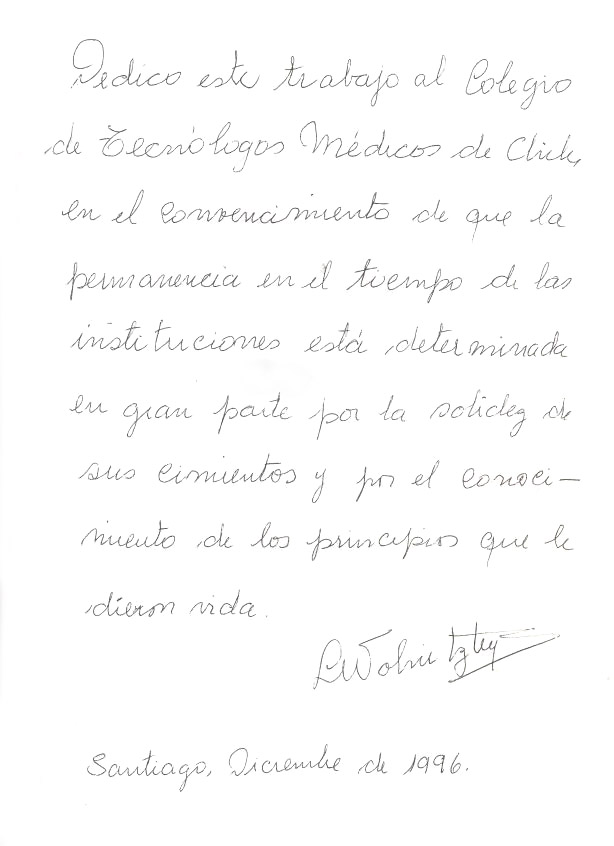 Dedico este trabajo al Colegio
de Tecnólogos Médicos de Chile,
en el convencimiento de que la
permanencia en el tiempo de las
instituciones está determinada
en gran parte por la solidez de
sus cimientos y por el conoci-
miento de los principios que le
dieron vida.
Santiago, Diciembre de 1996.